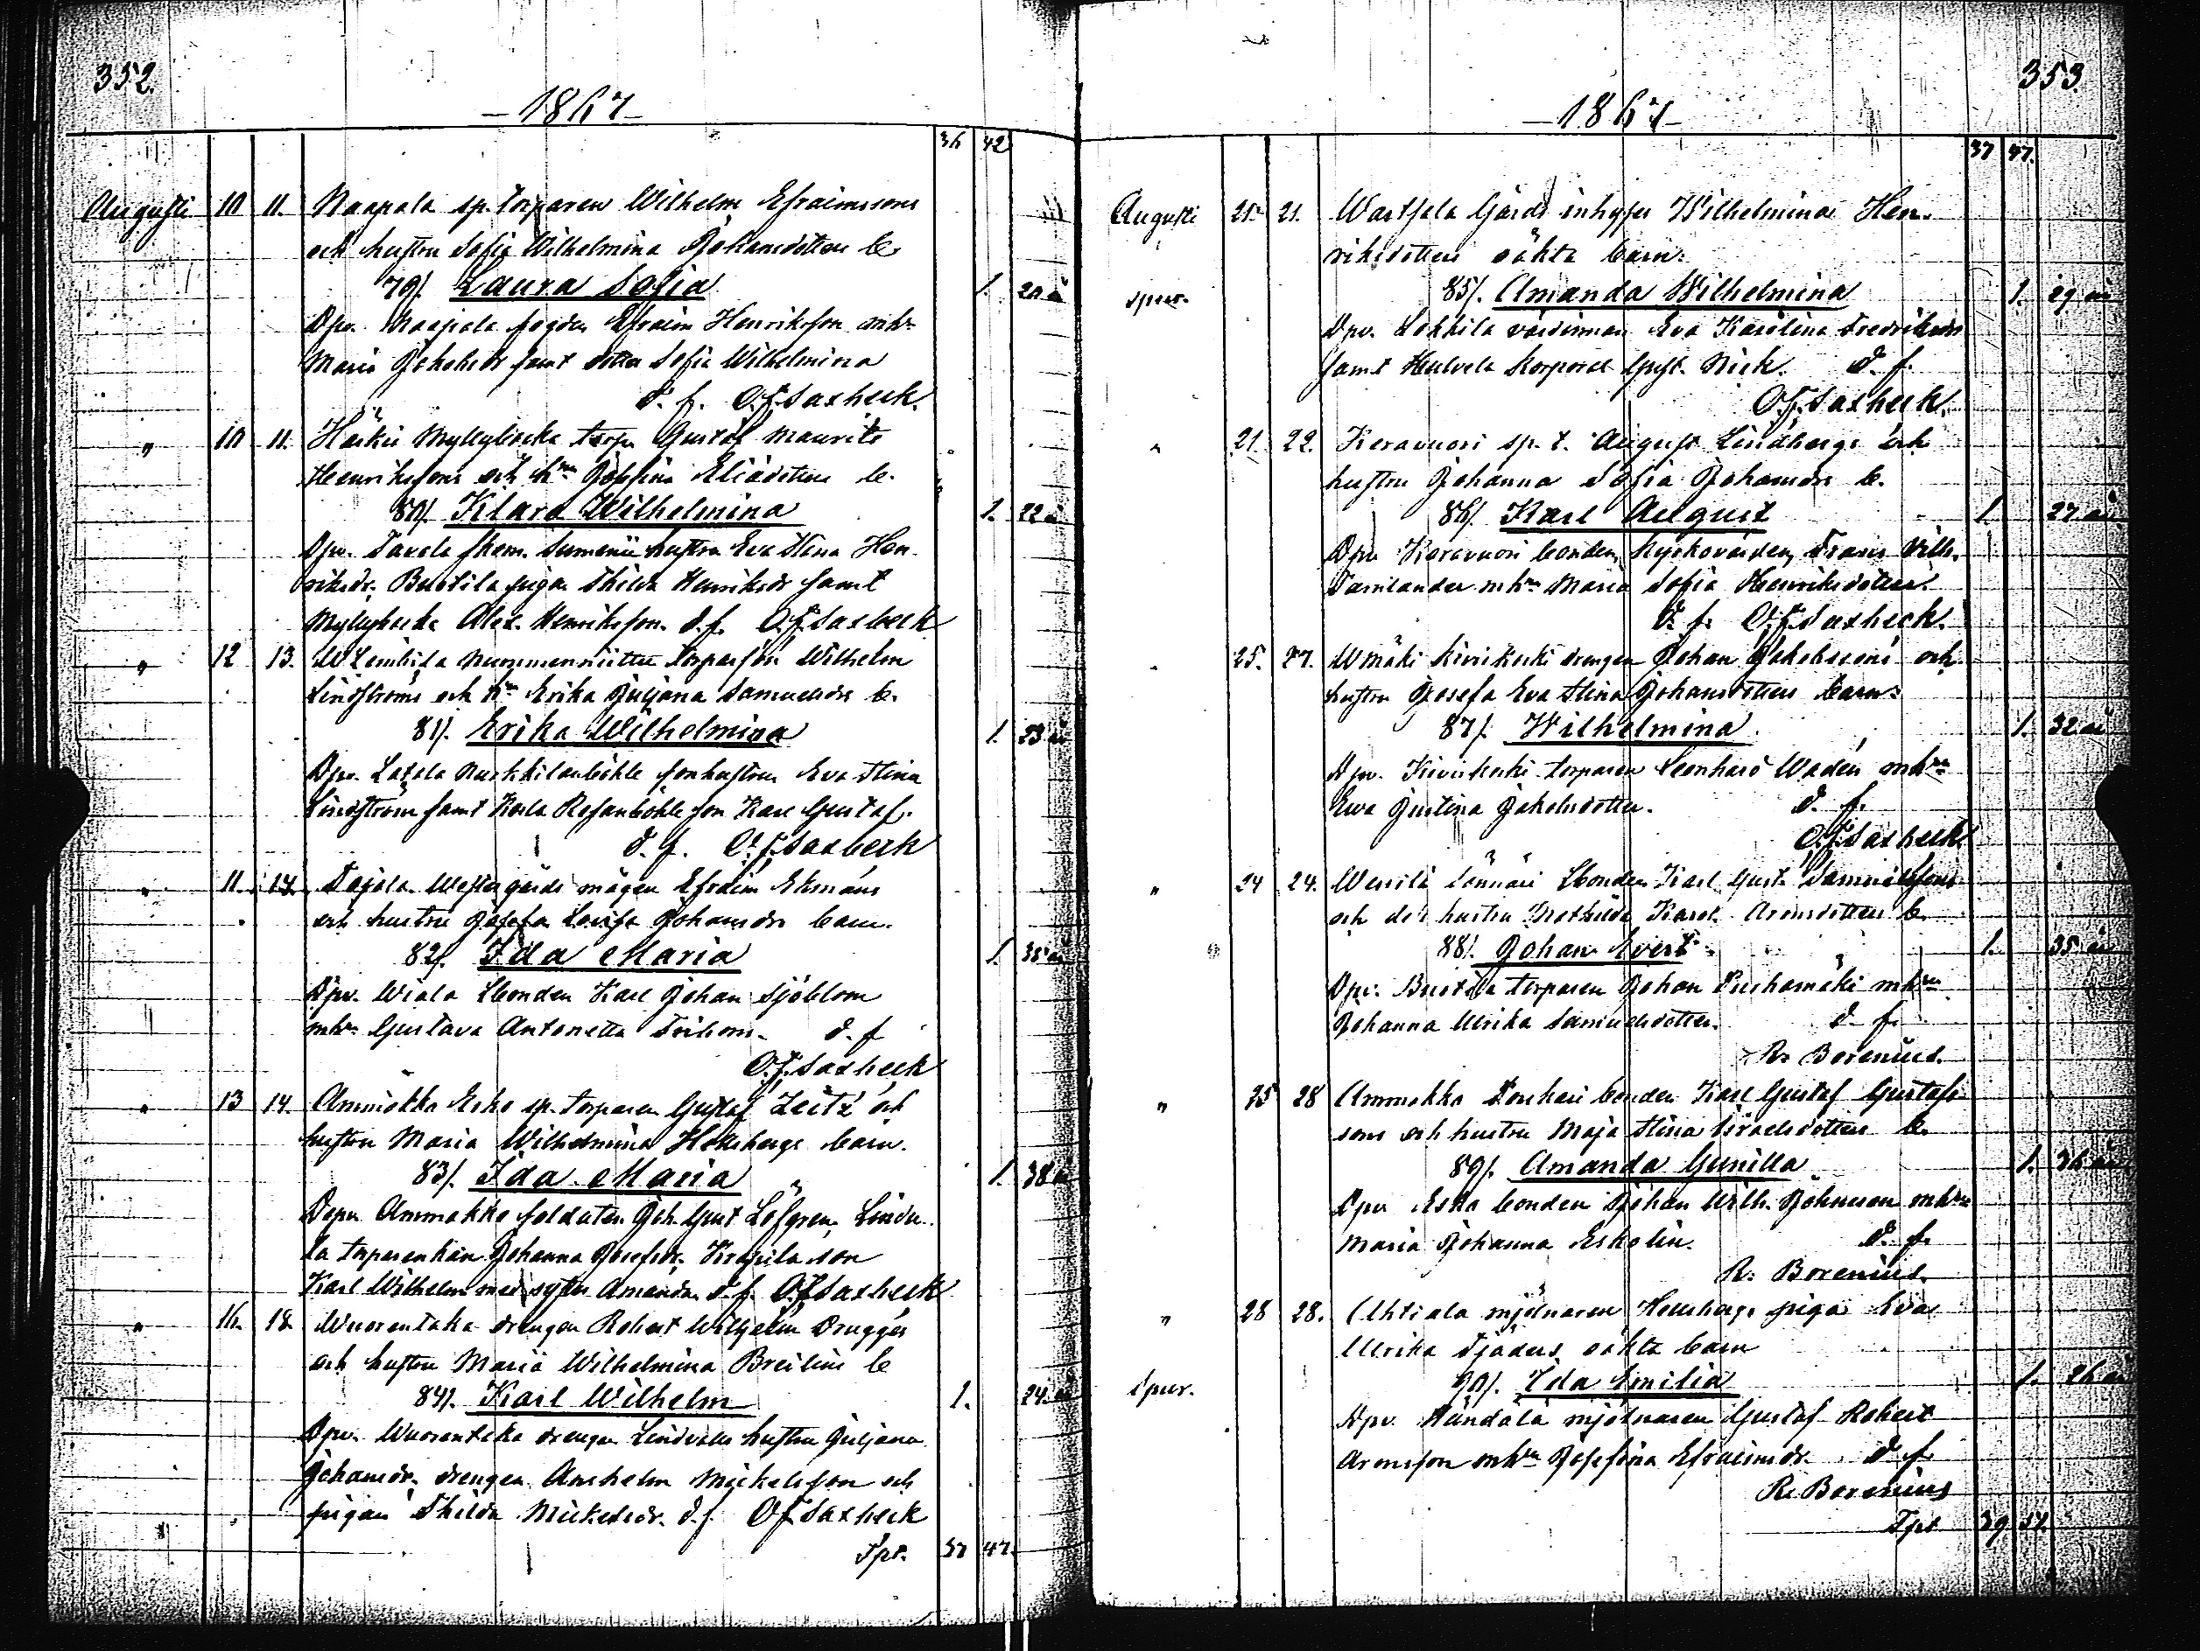 352.
-1867-
36 42
Augusti 10 11. Naapala sp. torparen Wilhelm Efraimssons
och hustru Sofia Wilhelmina Johansdotters b.
79/. Laura Sofia 1. 20 år
Dpv. Naapala fogden Efraim Henriksson mhr
Maria Jakobsdr samt dotter Sofia Wilhelmina
d. f. O.F. Saxbeck.
" 10 11. Härkis Myllybacka torp. Gustaf Maurits
Henrikssons och hru Josefina Eliædotters b.
80/. Klara Wilhelmina 1. 22 å
Dpv. Tavela skom. hustru Eva Stina Hen-
riksdr, Bustila pigan Thilda Henriksdr samt
Myllybacka Alex. Henriksson. d.f. O.F. Saxbeck
" 12 13. W Lembila torparson Wilhelm
Lindströms och hru Erika Juljana Samuelsdrs b.
81/. Erika Wilhelmina 1. 23 år
Dpv. sonhustrun Eva Stina
Lindström samt son Karl Gustaf.
d. f. O.F. Saxbeck
" 11. 14. Tajala Westergårds mågen Efraim Ekmans
och hustru Josefa Lovisa Johansdrs barn.
82/. Ida Maria 1. 35 år
Dpv. Wiala bonden Karl Johan Sjöblom
mhru Gustava Antonetta d. f
O.F. Saxbeck
" 13 14. Ammokka Esko sp. torparen Gustaf Zeitz och
hustru Maria Wilhelmina Höksbergs barn.
83/. Ida Maria 1. 38 år
Dopv. Ammokka soldaten Joh. Gust Löfgren,
la torparenkan Johanna Josefsdr, Krapila son
Karl Wilhelm med syster Amanda d.f. O.F. Saxbeck
" 16. 18. Wuorentaka drengen Robert Wilhelm Druggs
och hustru Maria Wilhelmina Breilins b
84/. Karl Wilhelm 1. 24. år
Dpv. Wuorentaka drengen Lindvalls hustru Juljana
Johansdr. drengen Anshelm Mickelsson och
pigan Thilda Mickelsdr. d.f. O F Saxbeck
Tpt. 37 47.
353
-1867-
37 47.
Augusti 21. Wartsala Gårds inhyses Wilhelmina Hen-
riksdotters oäkta barn.
spur. 85/. Amanda Wilhelmina 1. 29 år
Dpv. Lokkila värdinnan Eva Karolina Fredriksdr
samt Hulvela korporal Gust. Nick. d. f.
O.F. Saxbeck.
" 21. 22. Keravuori sp. t. August Lindbergs och
hustru Johanna Sofia Johansdrs b.
86/. Karl August 1. 27 år.
Dpv Keravuori bonden, kyrkovärden, Frans Vilh.
Tamlander mhru Maria Sofia Henriksdotter.
d. f. O.F. Saxbeck.
" 25. 27. W Mäki Kivikoski drengen Johan Jakobssons och
hustru Josefa Eva Stina Johansdotters barn.
87/. Wilhelmina 1. 32 år
Dpv. Kivikoski torparen Leonhard Wadén mhru
Eva Justina Jakobsdotter. d. f.
O.F. Saxbeck
" 24 24. Wesilä bonden Karl Gust. Samuelssons
och des hustru Mathilda Karol. Aronsdotters b.
88/. Johan Evert 1. 35 år
Dpv. Bustila torparen Johan mhru
Johanna Ulrika Samuelsdotter. d. f.
R. Borenius.
" 25 28 Ammokka bonden Karl Gustaf Gustafs-
sons och hustru Maja Stina Israelsdotters b.
89/. Amanda Gunilla 1. 36 år
Dpv Esko bonden Johan Wilh. Johnsson mhru
Maria Johanna Eskolin. d. f.
R. Borenius.
" 28 28. Uhtiala mjölnaren pigas Eva
Ulrika oäkta barn
spur. 90/. Ida Emilia 1. 26 år
Dpv. mjölnaren Gustaf Robert
Aronsson mhru Josefina Efraimsdr. d. f.
R. Borenius
Tpt 39 51.